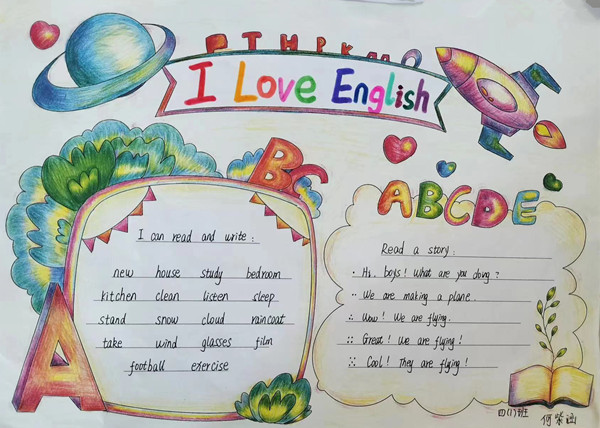 I Love English
A
BC
I can read and write:
new house study bedroom
kitchen clean listen sleep
stand snow cloud raincoat
take wind glasses film
football exercise
ABCDE
Read a story:
· Hi, boys! What are you dong?
·· We are making a plane.
∴ Wow! We are flying.
:: Great! We are flying!
Cool! They are flying!
四(1)班